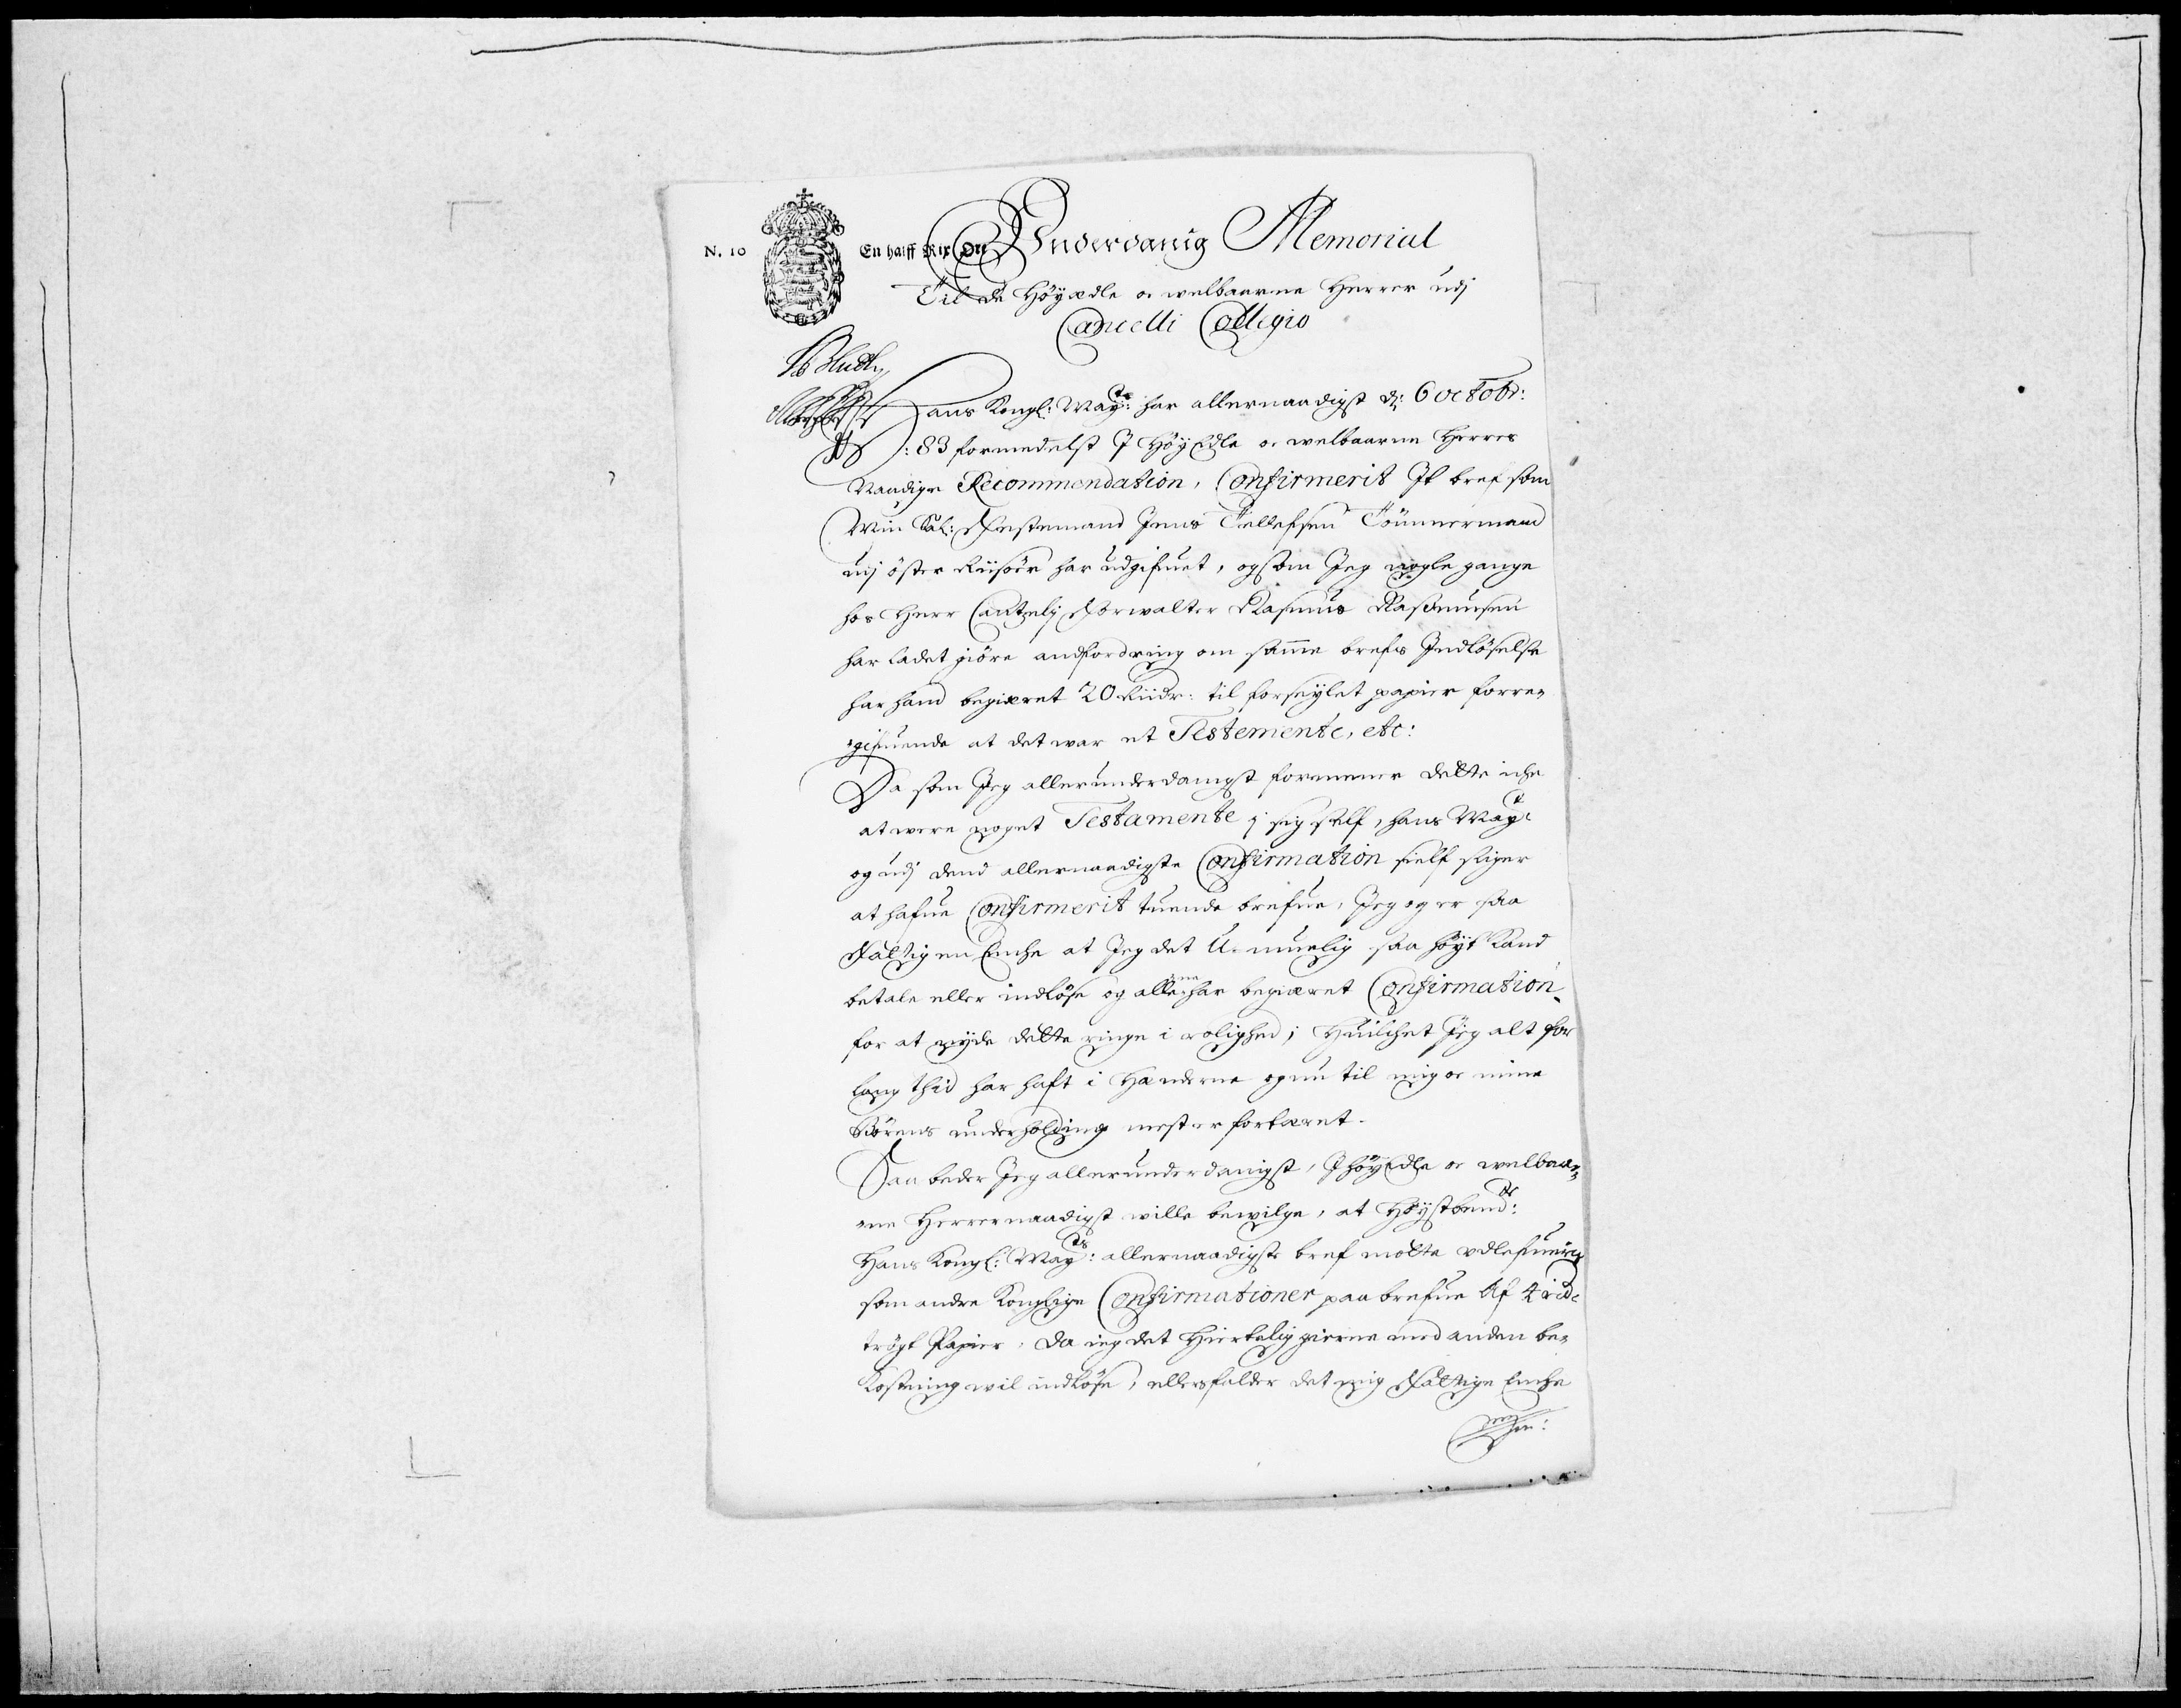 N. 10
En halff Rix Ort
Vnderdanig Memorial
Til de Höyædle oc welbaarne Herrer udj
Cancelli Collegio
Hans Kongl: Mayts: har allernaadigst d: 6 octobr:
: 83 formedelst I Höy Edle oc welbaarne Herres
Naadige Recommendation, Confirmerit It bref som
Min Sal: Festemand Jens Tellefsen Tömmermand
udj öster Riisöer har udgifuet, og som Jeg nogle gange
hos Herr Cantzelj Forwalter Rasmus Rasmusen
har ladet giöre andfordring om samme brefs Indlöselse
har hand begiæret 20 Riidr: til forseylet papier forre-
gifuende at det war et Testemente, etc:
Da som Jeg allerunderdanigst formener dette iche
at were noget Testamente j sig self, hans Mayt
og udj dend allernaadigste Confirmation sielf siger
at hafue Confirmerit tuende brefue, Jeg og er saa
Fattig en Enche at Jeg det U-muelig saa höyt Kand
betale eller indlöse og allene har begiæret Confirmation
for at nyde dette ringe i rolighed; Huilchet Jeg alt for
lang thid har haft i Hænderne og nu til mig oc mine
Börens underholding mest er fortæret.
Saa beder Jeg allerunderdanigst, I höyEdle oc welbaar-
ne Herrer naadigst wille bewilge, at Höystbemte:
Hans Kongl: Mayts: allernaadigste bref motte udlefueris
som andre Konglige Confirmationer paa brefue Af 4 rid:
trögt Papier, da ieg det Hiertelig gierne med anden be-
Kostning wil indlöse, ellers falder det mig Fattige Enche